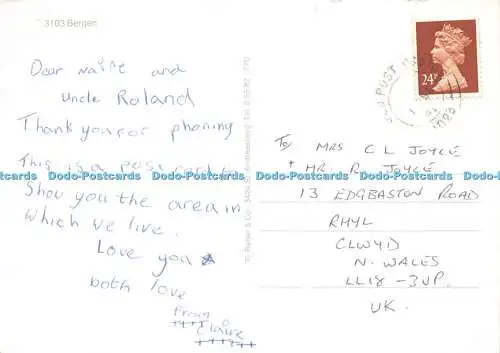 3103 Bergen
Dear Naine and
Uncle Roland
Thank you for phoning
This is a postcard to
Show you the area in
Which we live.
Love you
both love
From
Claire
24P
POST
To MRS C L JOYCE
+ MR. R. JOYCE
13 EDGBASTON ROAD
RHYL
CLWYD
N. WALES
LL18 - 3UP.
UK.
Dodo-Postcards Dodo-Postcards Dodo-Postcards Dodo-Postcards Dodo-Postcards